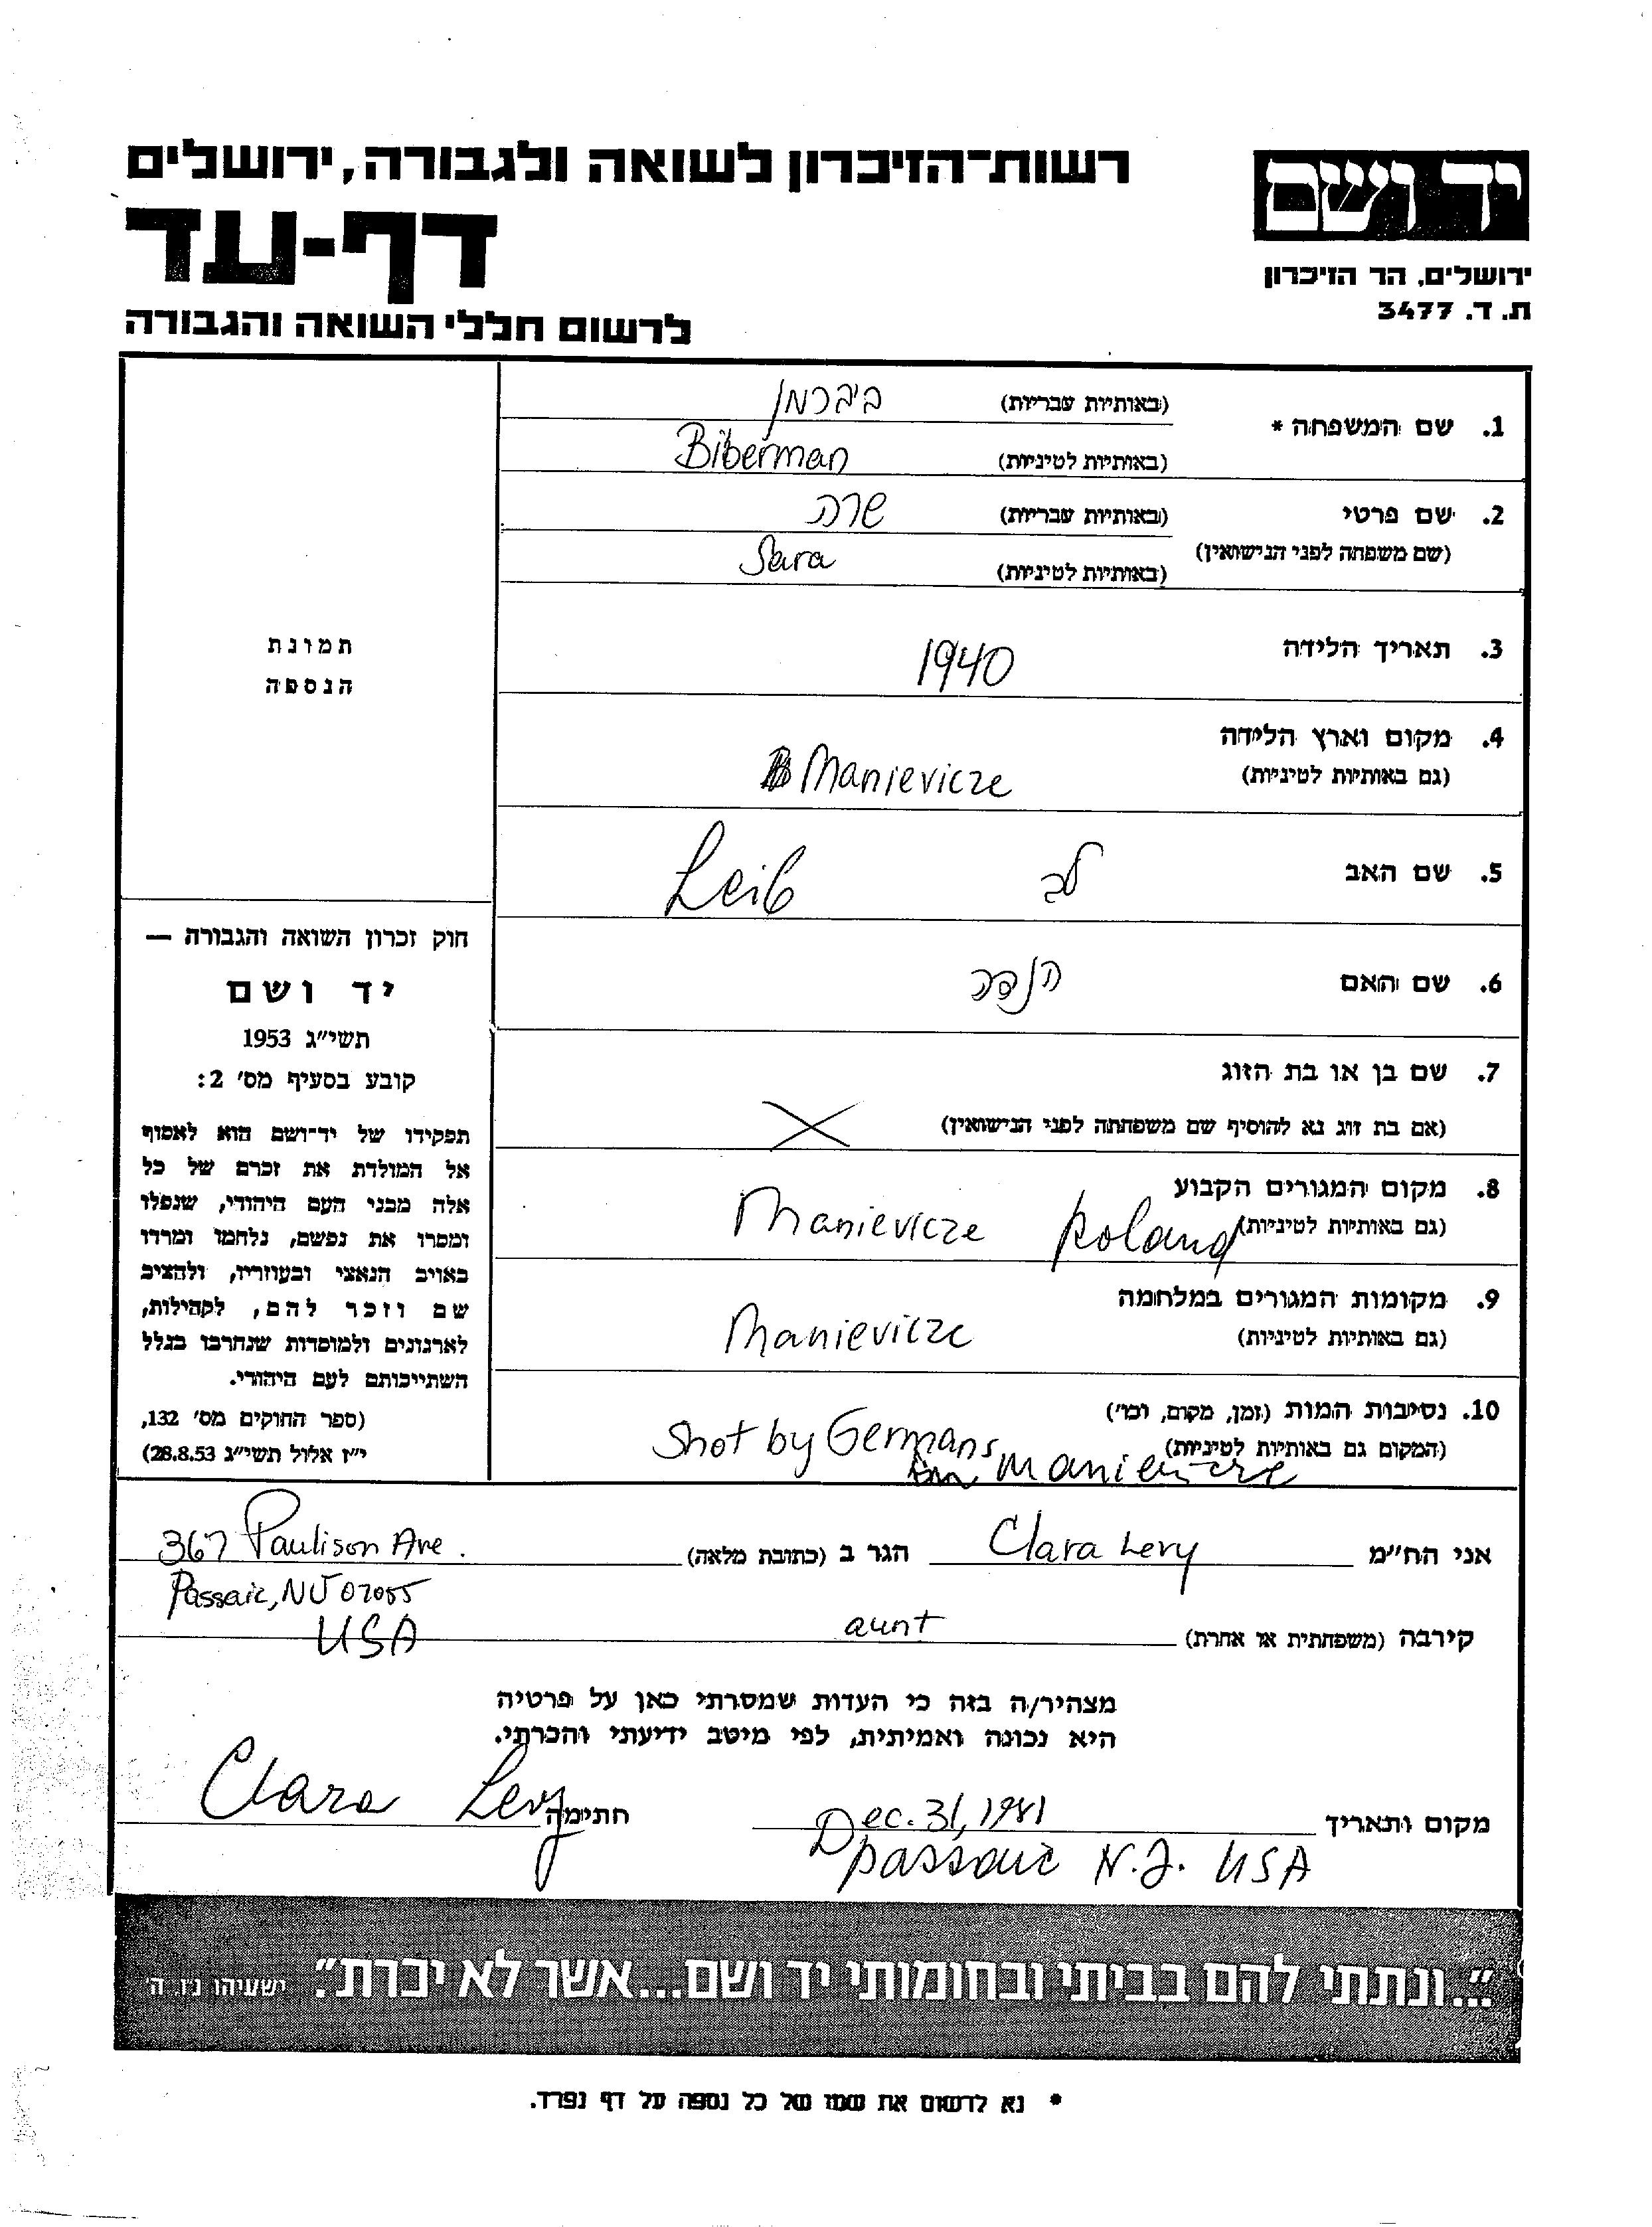 רשות־הזיכרון לשואה ולגבורה, ירושלים
דף-עד
לרשום חללי השואה והגבורה
יד ושם
ירושלים, הר הזיכרון
ת. ד. 3477
1. שם המשפחה *
(באותיות עבריות) ביברמן
(באותיות לטיניות) Biberman
2. שם פרטי
(שם משפחה לפני הנישואין)
(באותיות עבריות) שרה
(באותיות לטיניות) Sara
3. תאריך הלידה 1940
4. מקום וארץ הלידה
(גם באותיות לטיניות) Manievicze
5. שם האב לב Leib
6. שם האם
7. שם בן או בת הזוג
(אם בת זוג נא להוסיף שם משפחתה לפני הנישואין) X
8. מקום המגורים הקבוע
(גם באותיות לטיניות) Manievicze Poland
9. מקומות המגורים במלחמה
(גם באותיות לטיניות) Manievicze
10. נסיבות המות (זמן, מקום, וכו')
(המקום גם באותיות לטיניות) Shot by Germans
in Manievicze
תמונת
הנספה
חוק זכרון השואה והגבורה —
יד ושם
תשי״ג 1953
קובע בסעיף מס׳ 2:
תפקידו של יד־ושם הוא לאסוף
אל המולדת את זכרם של כל
אלה מבני העם היהודי, שנפלו
ומסרו את נפשם, נלחמו ומרדו
באויב הנאצי ובעוזריו, ולהציב
שם וזכר להם, לקהילות,
לארגונים ולמוסדות שנחרבו בגלל
השתייכותם לעם היהודי.
(ספר החוקים מס׳ 132,
י״ז אלול תשי״ג 28.8.53)
אני הח״מ Clara Levy הגר ב (כתובת מלאה) 367 Paulison Ave.
Passaic, NJ 07055
USA
קירבה (משפחתית או אחרת) aunt
מצהיר/ה בזה כי העדות שמסרתי כאן על פרטיה
היא נכונה ואמיתית, לפי מיטב ידיעתי והכרתי.
מקום ותאריך Dec. 31, 1981 חתימה Clara Levy
Passaic N.J. USA
״...ונתתי להם בביתי ובחומותי יד ושם...אשר לא יכרת״. ישעיהו נ״ו. ה׳
* נא לרשום את שמו של כל נספה על דף נפרד.